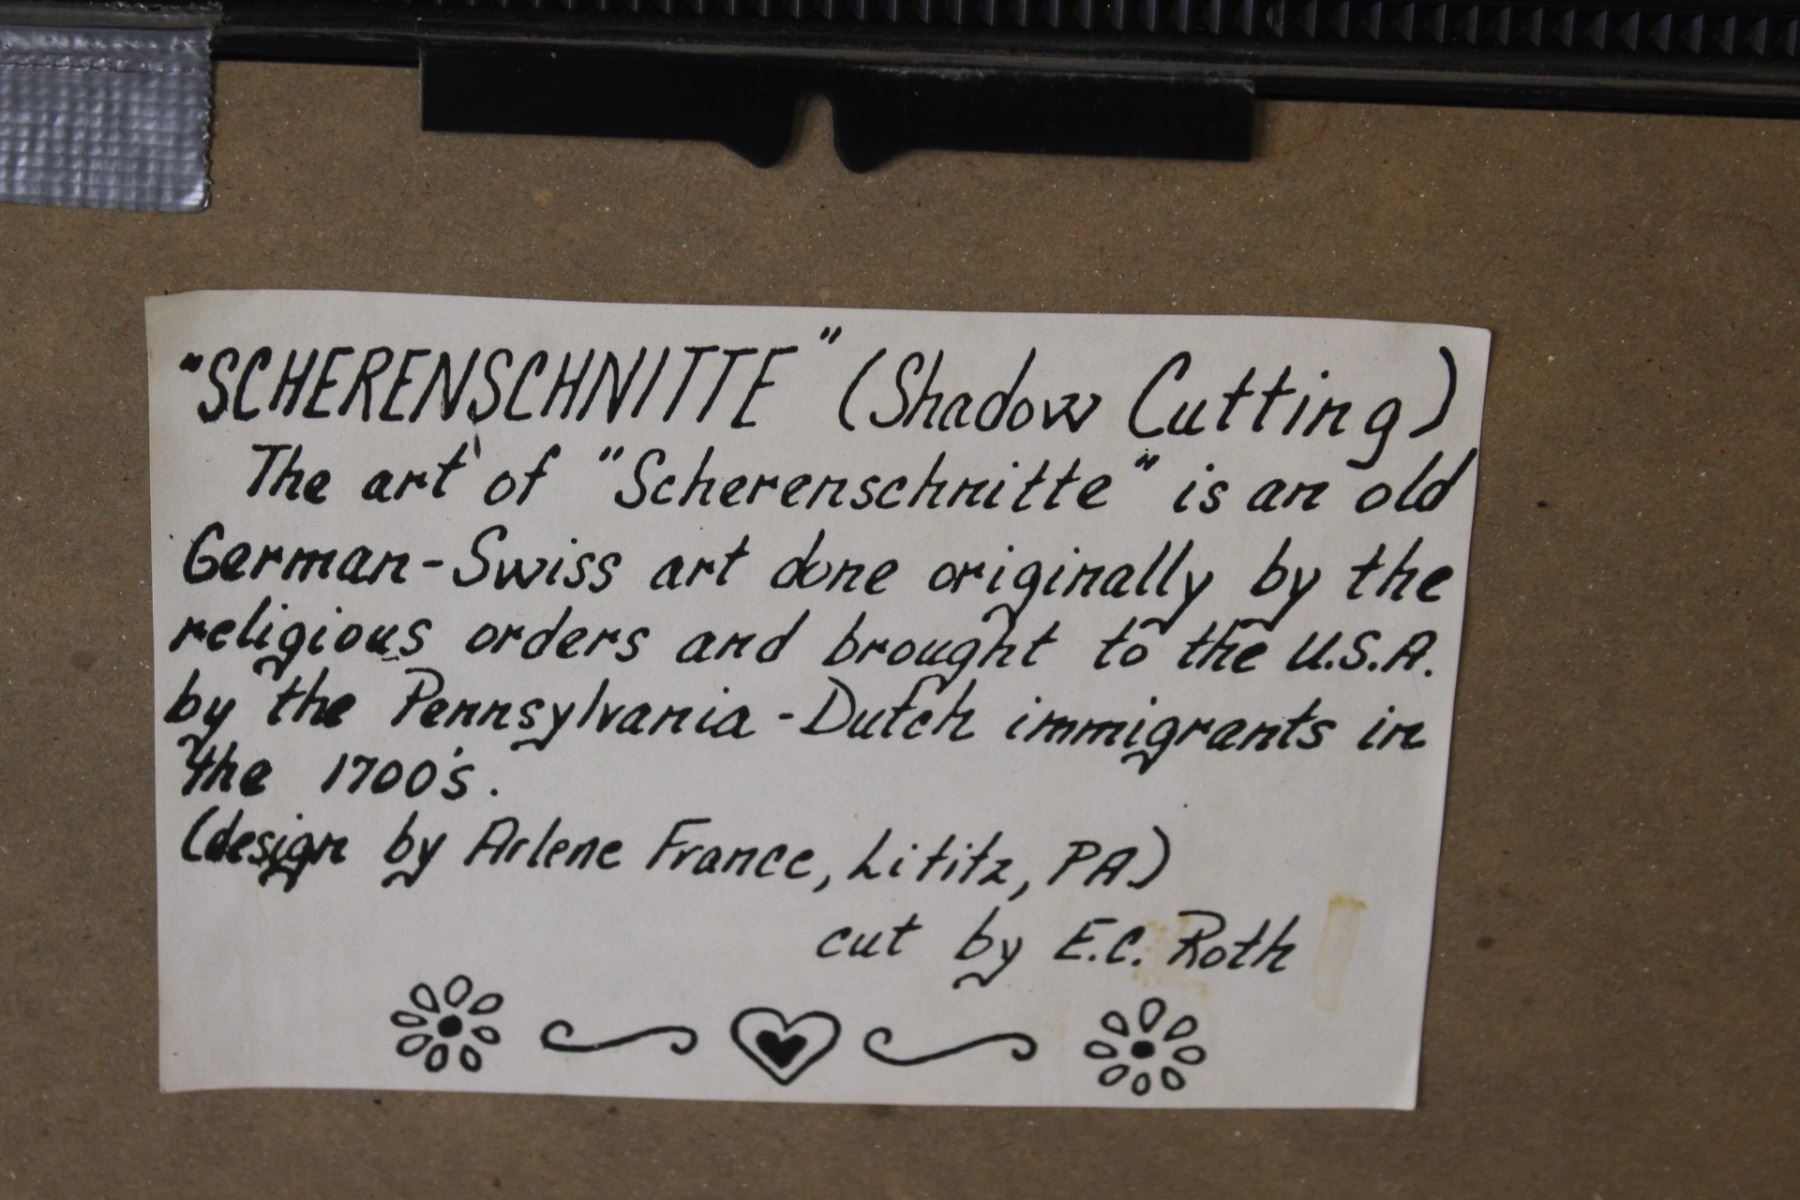 "SCHERENSCHNITTE" (Shadow Cutting)
The art of "Scherenschnitte" is an old
German-Swiss art done originally by the
religious orders and brought to the U.S.A.
by the Pennsylvania-Dutch immigrants in
the 1700's.
(design by Arlene France, Lititz, PA)
cut by E.C. Roth